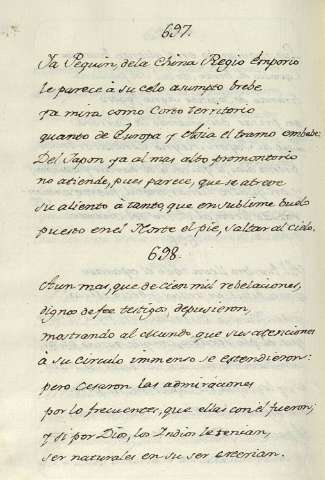 697.
Ya Pequin, dela China Regio Emporio
le parece à su celo asumpto brebe
ya mira como Corto territorio
quanto de Europa y Asia el tramo embebe:
Del Japon ya al mas alto promontorio
no atiende, pues parece, que se atreve
su aliento à tanto, que en sublime buelo
puesto en el Norte el pie, saltar al Cielo.
698.
Aun mas, que de cien mil rebelaciones,
dignos de fee testigos depusieron,
mostrando al Mundo que sus atenciones
à su Circulo immenso se estendieron:
pero Cesaron las admiraciones
por lo frecuentes, que ellas con èl fueron;
y si por Dios, los Indios le tenian,
ser naturales en su ser creerian.